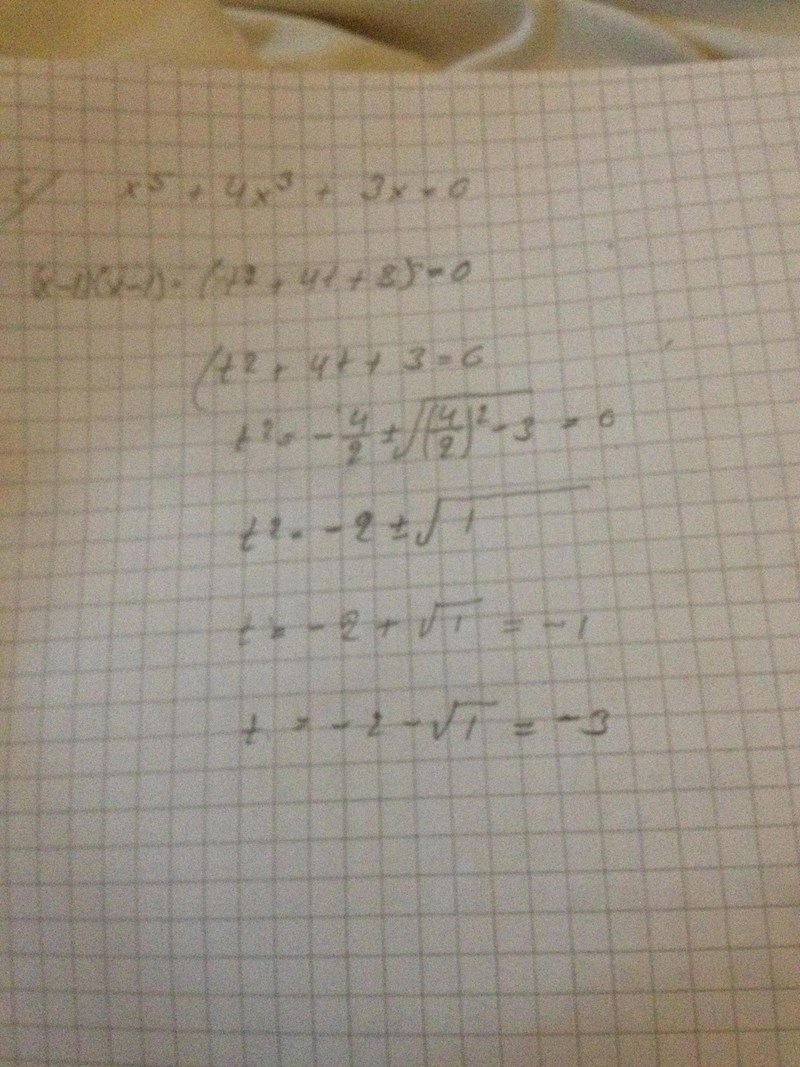 x⁵ + 4x³ + 3x = 0
(t² + 4t + 3) = 0
(t² + 4t + 3 = 0
t² = - 4/2 ± √(4/2)² - 3 = 0
t² = - 2 ± √1
t = - 2 + √1 = -1
t = - 2 - √1 = -3